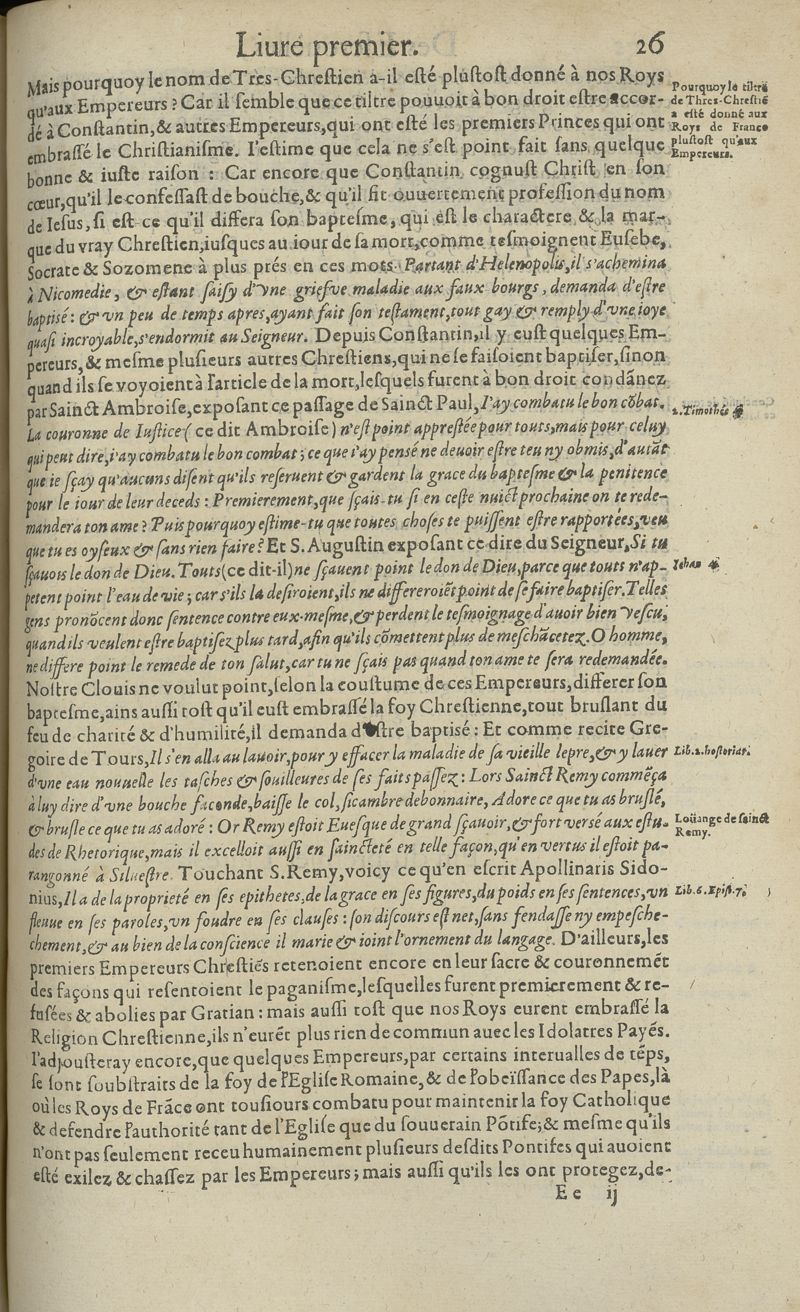 Liure premier. 26
Mais pourquoy le nom de Tres-Chreſtien a-il eſté pluſtoſt donné à nos Roys
qu'aux Empereurs ? Car il ſemble que ce tiltre pouuoit à bon droit eſtre accor-
dé à Conſtantin, & autres Empereurs, qui ont eſté les premiers Princes qui ont
embraſſé le Chriſtianiſme. I'eſtime que cela ne s'eſt point fait ſans quelque
bonne & iuſte raiſon : Car encore que Conſtantin cognuſt Chriſt en ſon
cœur, qu'il le confeſſaſt de bouche, & qu'il fit ouuertement profeſſion du nom
de Ieſus, ſi eſt ce qu'il differa ſon bapteſme, qui eſt le charactere & la mar-
que du vray Chreſtien, iuſques au iour de ſa mort, comme teſmoignent Euſebe,
Socrate & Sozomene à plus prés en ces mots. Partant d'Helenopolis, il s'achemina
à Nicomedie, & eſtant ſaiſy d'vne griefve maladie aux faux bourgs, demanda d'eſtre
baptisé : & vn peu de temps apres, ayant fait ſon teſtament, tout gay & remply d'vne ioye
quaſi incroyable, s'endormit au Seigneur. Depuis Conſtantin, il y euſt quelques Em-
pereurs, & meſme pluſieurs autres Chreſtiens, qui ne ſe faiſoient baptiſer, ſinon
quand ils ſe voyoient à l'article de la mort, leſquels furent à bon droit condãnez
par Sainct Ambroiſe, expoſant ce paſſage de Sainct Paul, I'ay combatu le bon cõbat.
La couronne de Iuſtice ( ce dit Ambroiſe ) n'eſt point appreſtée pour touts, mais pour celuy
qui peut dire, i'ay combatu le bon combat ; ce que i'ay pensé ne deuoir eſtre teu ny obmis, d'autãt
que ie ſçay qu'aucuns diſent qu'ils reſeruent & gardent la grace du bapteſme & la penitence
pour le iour de leur deceds : Premierement, que ſçais-tu ſi en ceſte nuict prochaine on te rede-
mandera ton ame ? Puis pourquoy eſtime-tu que toutes choſes te puiſſent eſtre rapportées, veu
que tu es oyſeux & ſans rien faire ? Et S. Auguſtin expoſant ce dire du Seigneur, Si tu
ſçauois le don de Dieu. Touts (ce dit-il) ne ſçauent point le don de Dieu, parce que touts n'ap-
petent point l'eau de vie ; car s'ils la deſiroient, ils ne differeroiẽt point de ſe faire baptiſer. Telles
gens pronõcent donc ſentence contre eux-meſme, & perdent le teſmoignage d'auoir bien veſcu,
quand ils veulent eſtre baptiſez plus tard, afin qu'ils cõmettent plus de meſchãcetez. O homme,
ne differe point le remede de ton ſalut, car tu ne ſçais pas quand ton ame te ſera redemandée.
Noſtre Clouis ne voulut point, ſelon la couſtume de ces Empereurs, differer ſon
bapteſme, ains auſſi toſt qu'il euſt embraſſé la foy Chreſtienne, tout bruſlant du
feu de charité & d'humilité, il demanda d'eſtre baptisé : Et comme recite Gre-
goire de Tours, Il s'en alla au lauoir, pour y effacer la maladie de ſa vieille lepre, & y lauer
d'vne eau nouuelle les taſches & ſouilleures de ſes faits paſſez : Lors Sainct Remy commẽça
à luy dire d'vne bouche faconde, baiſſe le col, ſicambre debonnaire, Adore ce que tu as bruſlé,
& bruſle ce que tu as adoré : Or Remy eſtoit Eueſque de grand ſçauoir, & fort versé aux eſtu-
des de Rhetorique, mais il excelloit auſſi en ſaincteté en telle façon, qu'en vertus il eſtoit pa-
rangonné à Silueſtre. Touchant S. Remy, voicy ce qu'en eſcrit Apollinaris Sido-
nius, Il a de la proprieté en ſes epithetes, de la grace en ſes figures, du poids en ſes ſentences, vn
fleuue en ſes paroles, vn foudre en ſes clauſes : ſon diſcours eſt net, ſans fendaſſe ny empeſche-
chement, & au bien de la conſcience il marie & ioint l'ornement du langage. D'ailleurs, les
premiers Empereurs Chreſtiẽs retenoient encore en leur ſacre & couronnemẽt
des façons qui reſentoient le paganiſme, leſquelles furent premierement & re-
fuſées & abolies par Gratian : mais auſſi toſt que nos Roys eurent embraſſé la
Religion Chreſtienne, ils n'eurẽt plus rien de commun auec les Idolatres Payẽs.
I'adjouſteray encore, que quelques Empereurs, par certains interualles de tẽps,
ſe ſont ſoubſtraits de la foy de l'Egliſe Romaine, & de l'obeïſſance des Papes, là
où les Roys de Frãce ont touſiours combatu pour maintenir la foy Catholique
& defendre l'authorité tant de l'Egliſe que du ſouuerain Põtife ; & meſme qu'ils
n'ont pas ſeulement receu humainement pluſieurs deſdits Pontifes qui auoient
eſté exilez & chaſſez par les Empereurs ; mais auſſi qu'ils les ont protegez, de-
E e ij
Pourquoy le tiltre
de Thres-Chreſtiẽ
a eſté donné aux
Roys de France
pluſtoſt qu'aux
Empereurs.
2. Timothée 4.
Iehan 4.
Lib. 2. hiſtoriar.
Loüange de ſainct
Remy.
Lib. 6. Epiſt. 7.